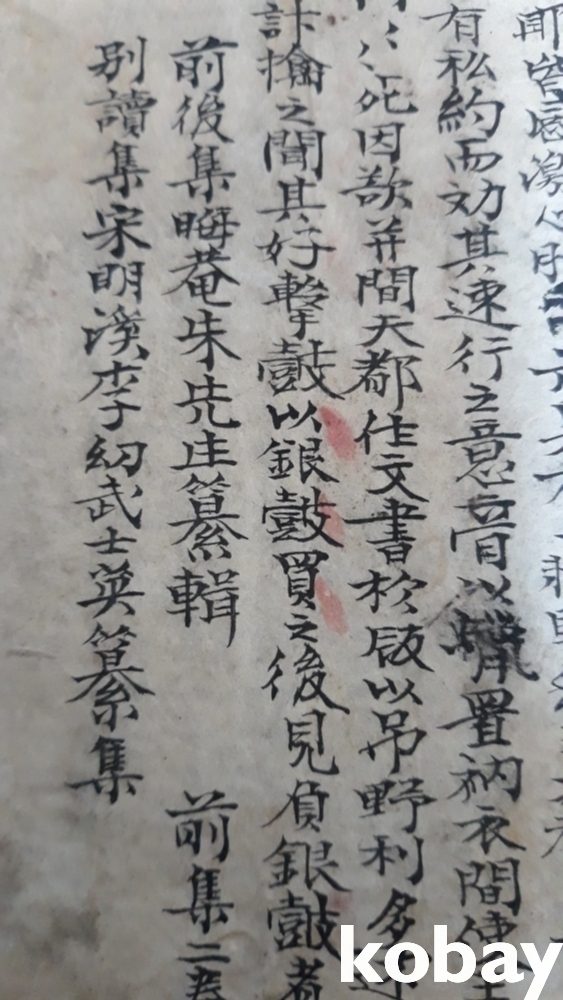 耶皆感激心
有私約而効其速行之意膏以蠟置衲衣間使
死因欷并間天都作文書於版以吊野利多
計擒之聞其好擊皷以銀皷買之後見負銀皷者
前後集晦菴朱先生纂輯 前集二
別讀集宋明漢李幼武士英纂集
kobay